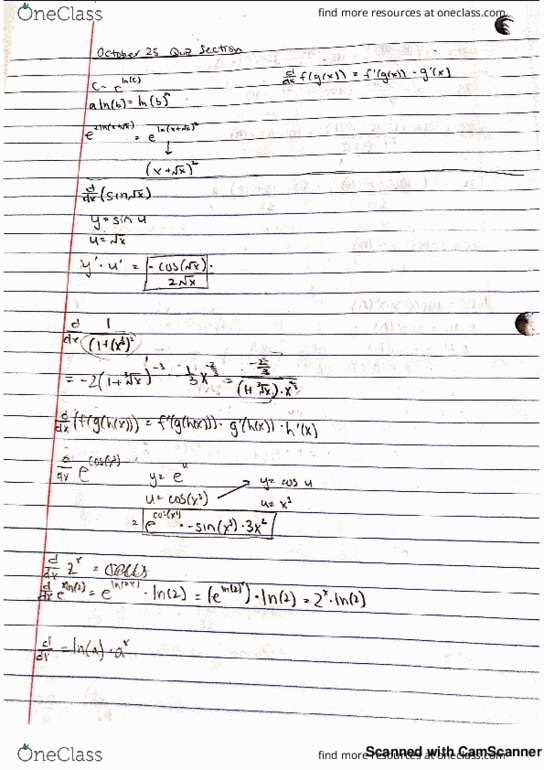 OneClass find more resources at oneclass.com
October 25 Quiz Section
c = e^ln(c) d/dx f(g(x)) = f'(g(x)) · g'(x)
a ln(b) = ln(b)^a
e^2ln(x+√x) = e^ln(x+√x)^2
↓
(x+√x)^2
d/dx (sin√x)
y = sin u
u = √x
y' · u' = - cos(√x) · / 2√x
d/dx 1/(1+(x^⅓)^2
= -2(1+∛x)^-3 · 1/3 x^-2/3 = -2/3 / (1+∛x) · x^2/3
d/dx (f(g(h(x))) = f'(g(h(x))) · g'(h(x)) · h'(x)
d/dx e^cos(x³)
y = e^u y = cos u
u = cos(x³) u = x³
= e^cos(x³) · -sin(x³) · 3x²
d/dx 2^x =
d/dx e^xln(2) = e^ln(2x) · ln(2) = (e^ln(2)^x) · ln(2) = 2^x · ln(2)
d/dx = ln(a) · a^x
OneClass find more resources at oneclass.com
Scanned with CamScanner